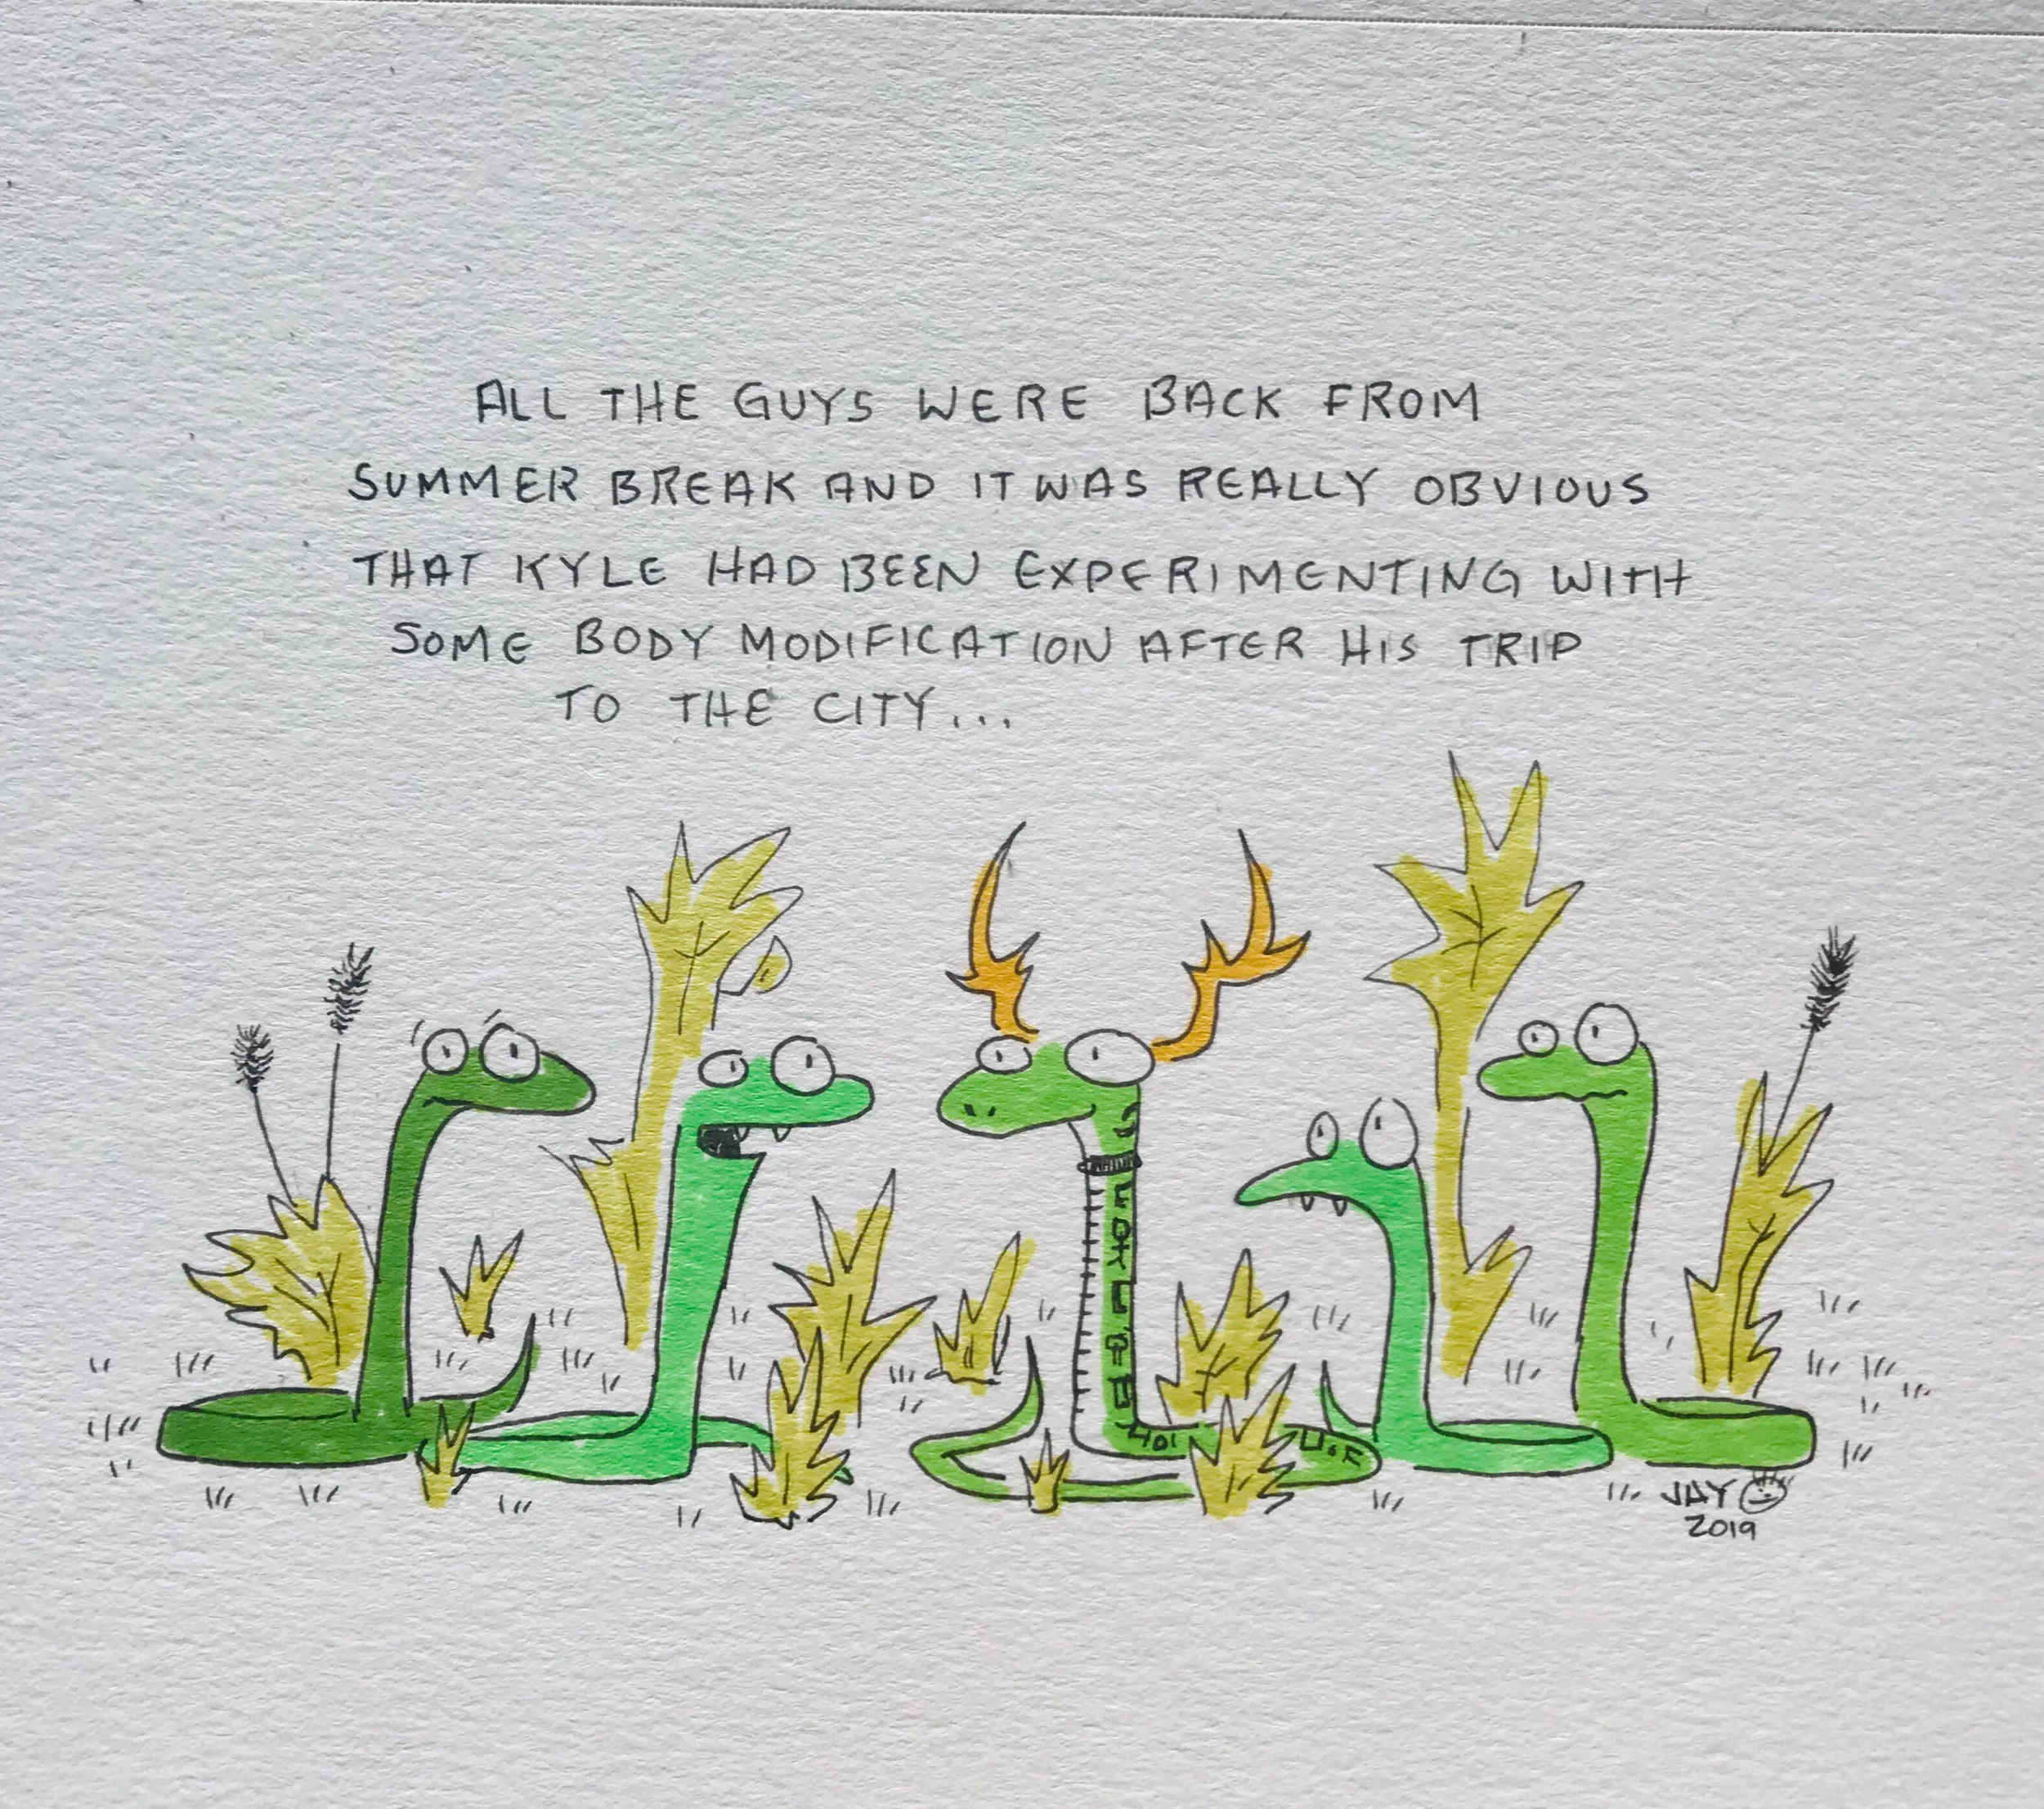 ALL THE GUYS WERE BACK FROM
SUMMER BREAK AND IT WAS REALLY OBVIOUS
THAT KYLE HAD BEEN EXPERIMENTING WITH
SOME BODY MODIFICATION AFTER HIS TRIP
TO THE CITY...
JAY
2019